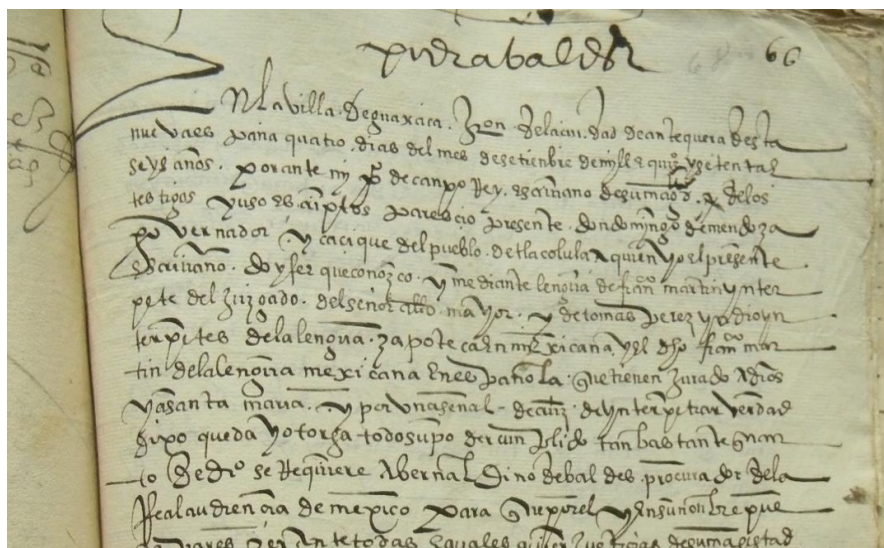 66
En la villa de guaxaca. Jzon de la ciudad de antequera desta
nueva españa quatro dias del mes de setienbre de myll e quis y setenta e
seys años. por ante my po de canpo Rey. escrivano de su magd. y de los
testigos yuso escriptos parescio presente. don domingo de mendoza
governador y cacique del pueblo. de tlacolula a quien yo el presente
escrivano. doy fee que conozco. y mediante lengua de franco martin ynter
pete del juzgado. del señor allde mayor. y de tomas perez yndio yn
terpetes de la lengua. zapoteca en mexicana, y el dho franco mar
tin de la lengua mexicana en española. que tienen jurado a dios
y a santa maria. y por una señal de cruz de ynterpetrar verdad
dixo que da y otorga todo su poder cunplido tan bastante quan
to de dro se Requiere a bernaldino de baldes. procurador de la
Real audiencia de mexico para que por el y en su nonbre pue
ante todas